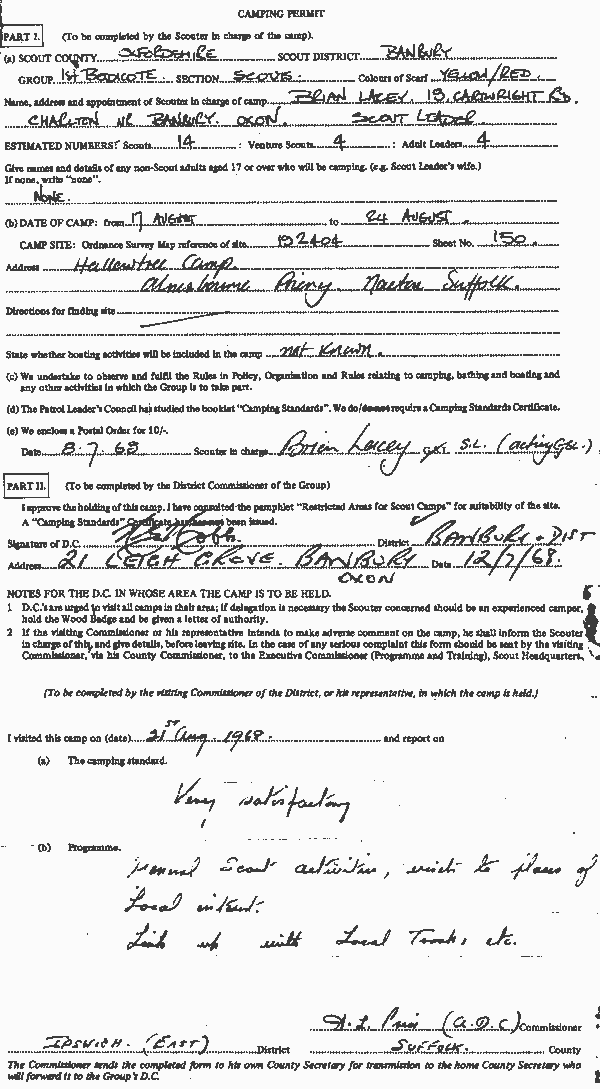 CAMPING PERMIT
PART I. (To be completed by the Scouter in charge of the camp).
(a) SCOUT COUNTY OXFORDSHIRE SCOUT DISTRICT BANBURY
GROUP 1st BODICOTE SECTION SCOUTS Colours of Scarf YELLOW/RED.
Name, address and appointment of Scouter in charge of camp BRIAN LACEY, 19 CARTWRIGHT RD,
CHARLTON NR BANBURY. OXON. SCOUT LEADER.
ESTIMATED NUMBERS: Scouts 14 : Venture Scouts 4 : Adult Leaders 4
Give names and details of any non-Scout adults aged 17 or over who will be camping. (e.g. Scout Leader's wife.)
If none, write "none".
NONE.
(b) DATE OF CAMP: from 17 AUGUST to 24 AUGUST.
CAMP SITE: Ordnance Survey Map reference of site 192404 Sheet No. 150.
Address Hallowtree Camp.
Alnesbourne Priory Nacton Suffolk.
Directions for finding site
State whether boating activities will be included in the camp not known.
(c) We undertake to observe and fulfil the Rules in Policy, Organisation and Rules relating to camping, bathing and boating and
any other activities in which the Group is to take part.
(d) The Patrol Leader's Council has studied the booklet "Camping Standards". We do/do not require a Camping Standards Certificate.
(e) We enclose a Postal Order for 10/-.
Date 8.7.68 Scouter in charge Brian Lacey S.L. (acting GSL.)
PART II. (To be completed by the District Commissioner of the Group)
I approve the holding of this camp. I have consulted the pamphlet "Restricted Areas for Scout Camps" for suitability of the site.
A "Camping Standards" Certificate has/has not been issued.
Signature of D.C. District BANBURY + DIST
Address 21 LEIGH GROVE. BANBURY Date 12/7/68.
OXON
NOTES FOR THE D.C. IN WHOSE AREA THE CAMP IS TO BE HELD.
1 D.C.'s are urged to visit all camps in their area; if delegation is necessary the Scouter concerned should be an experienced camper,
hold the Wood Badge and be given a letter of authority.
2 If the visiting Commissioner or his representative intends to make adverse comment on the camp, he shall inform the Scouter
in charge of this, and give details, before leaving site. In the case of any serious complaint this form should be sent by the visiting
Commissioner, via his County Commissioner, to the Executive Commissioner (Programme and Training), Scout Headquarters.
(To be completed by the visiting Commissioner of the District, or his representative, in which the camp is held.)
I visited this camp on (date) 21st Aug. 1968. and report on
(a) The camping standard.
Very satisfactory
(b) Programme.
Normal Scout activities, visits to places of
Local interest.
Link up with Local Troops, etc.
(A.D.C) Commissioner
IPSWICH. (EAST) District SUFFOLK. County
The Commissioner sends the completed form to his own County Secretary for transmission to the home County Secretary who
will forward it to the Group's D.C.